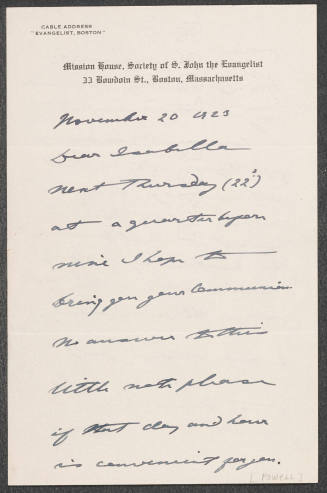 CABLE ADDRESS
"EVANGELIST, BOSTON"
Mission House, Society of S. John the Evangelist
33 Bowdoin St., Boston, Massachusetts
November 20 1923
Dear Isabella
Next Thursday (22d)
at a quarter before
nine I hope to
bring you your Communion
No answer to this
little note please
if that day and hour
is convenient for you.
[POWELL]